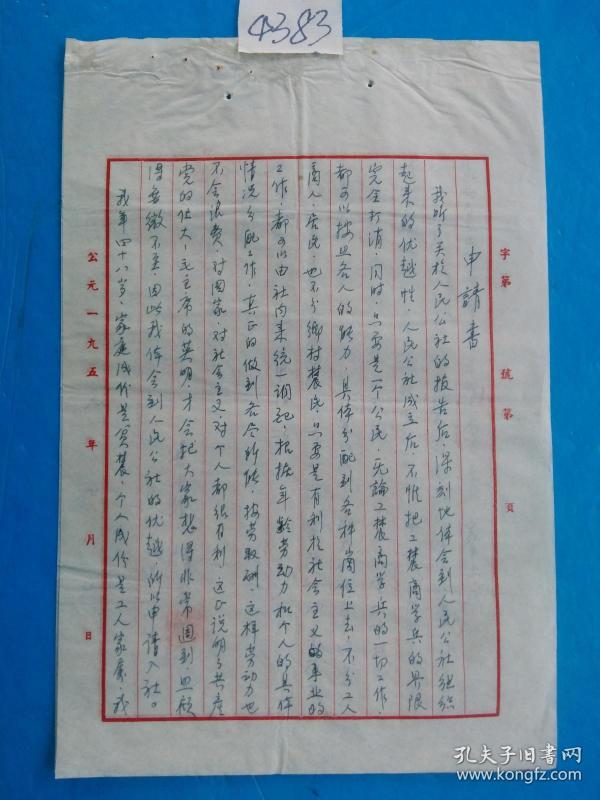 4383
字第 號第 頁
申請書
我听了关於人民公社的报告后，深刻地体会到人民公社组织
起来的优越性，人民公社成立后，不惟把工農商学兵的界限
完全打消，同时，只要是一个公民，无論工農商学兵的一切工作，
都可以按照各人的能力，具体分配到各种崗位上去，不分工人
商人、居民，也不分鄉村農民，只要是有利於社会主义的事业的
工作，都可以由社内来统一调配，根据年龄劳动力和个人的具体
情况分配工作，真正的做到各尽所能，按劳取酬，这样劳动力也
不会浪费，对国家，对社会主义，对个人都很有利，这正说明了共產
党的伟大，毛主席的英明，才会把大家想得非常週到，照顾
得無微不至，因此我体会到人民公社的优越，所以申请入社。
我年四十八岁，家庭成份是贫農，个人成份是工人家屬，我
公元一九五 年 月 日
孔夫子旧书网
www.kongfz.com